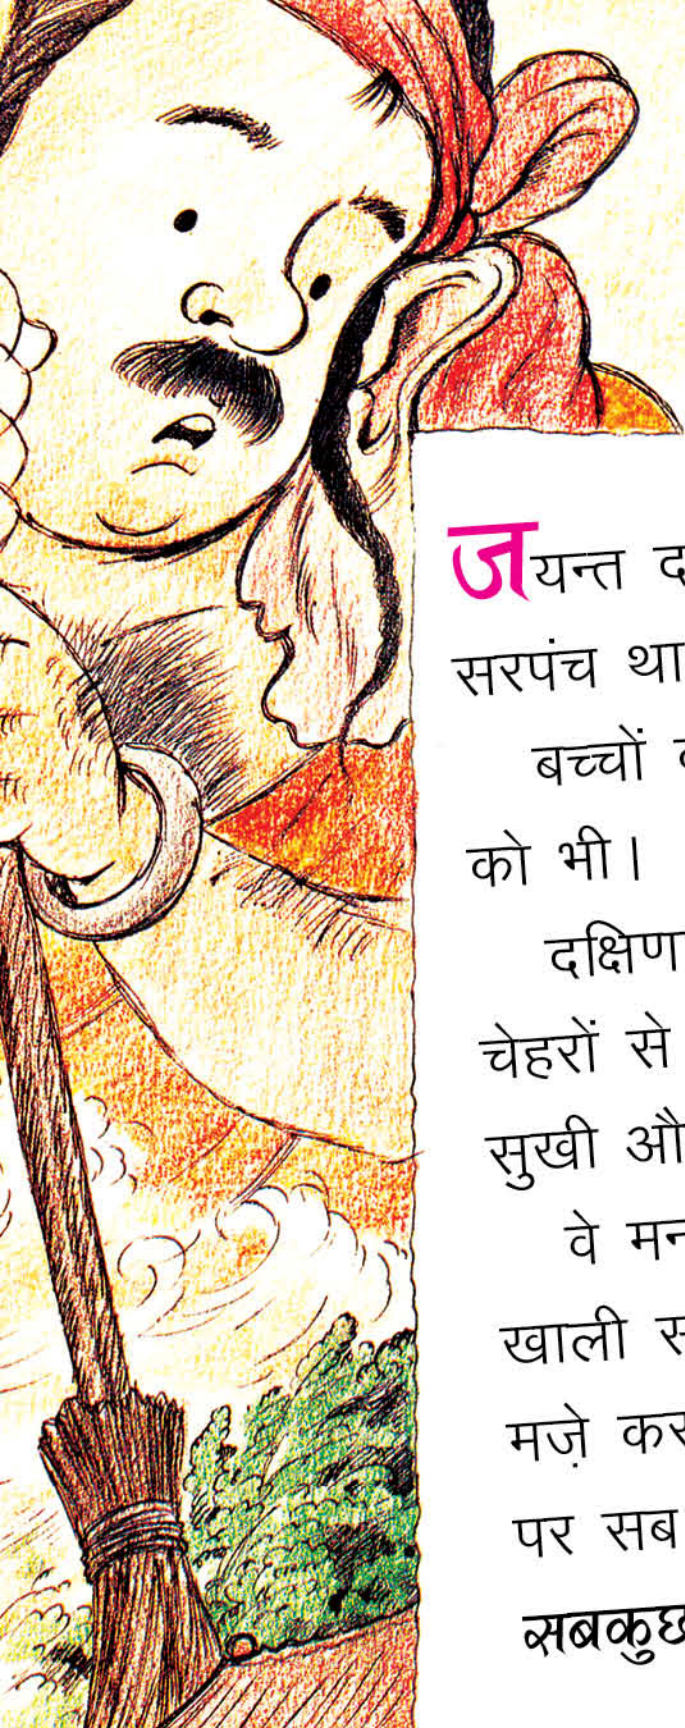 जयन्त
सरपंच था
बच्चों
को भी।
दक्षिण
चेहरों से
सुखी
वे
खाली
मज़े
पर सब
सबकुछ